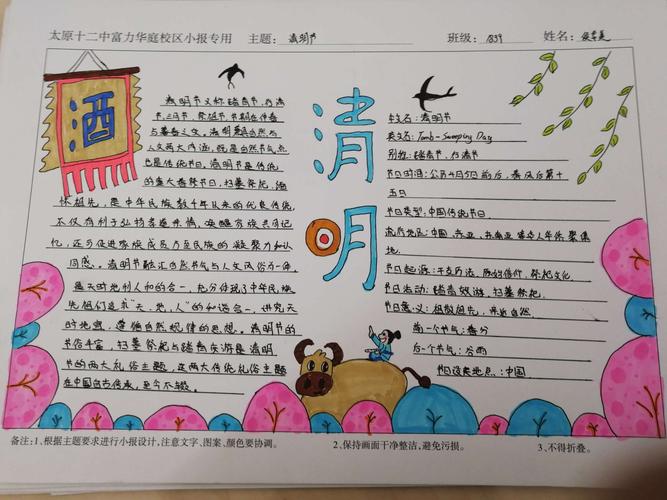 太原十二中富力华庭校区小报专用 主题: 清明节 班级: 1839 姓名:
酒
清明
清明节又称踏青节、行清
节、三月节、祭祖节,节期在仲春
与暮春之交。清明兼具自然与
人文两大内涵,既是自然节气点
也是传统节日。清明节是传统
的重大春祭节日,扫墓祭祀、缅
怀祖先,是中华民族数千年以来的优良传统,
不仅有利于弘扬孝道亲情、唤醒家族共同记
忆,还可促进家族成员乃至民族的凝聚力和认
同感。清明节融汇自然节气与人文风俗为一体,
是天时地利人和的合一,充分体现了中华民族
先祖们追求“天、地、人”的和谐合一,讲究天
时地宜、遵循自然规律的思想。清明节的
节俗丰富,扫墓祭祀与踏青郊游是清明
节的两大礼俗主题,这两大传统礼俗主题
在中国自古传承,至今不辍。
中文名:清明节
英文名:Tomb-Sweeping Day
别称:踏青节、行清节
节日时间:公历4月5日前后,春分后第十
五日
节日类型:中国传统节日
流行地区:中国、东亚、东南亚华人聚集
地
节日起源:干支历法、原始信仰、祭祀文化
节日活动:踏青郊游、扫墓祭祀
节日意义:祖敬祖先、亲近自然
前一个节气:春分
后一个节气:谷雨
节日设定地点:中国
备注:1、根据主题要求进行小报设计,注意文字、图案、颜色要协调。 2、保持画面干净整洁,避免污损。 3、不得折叠。